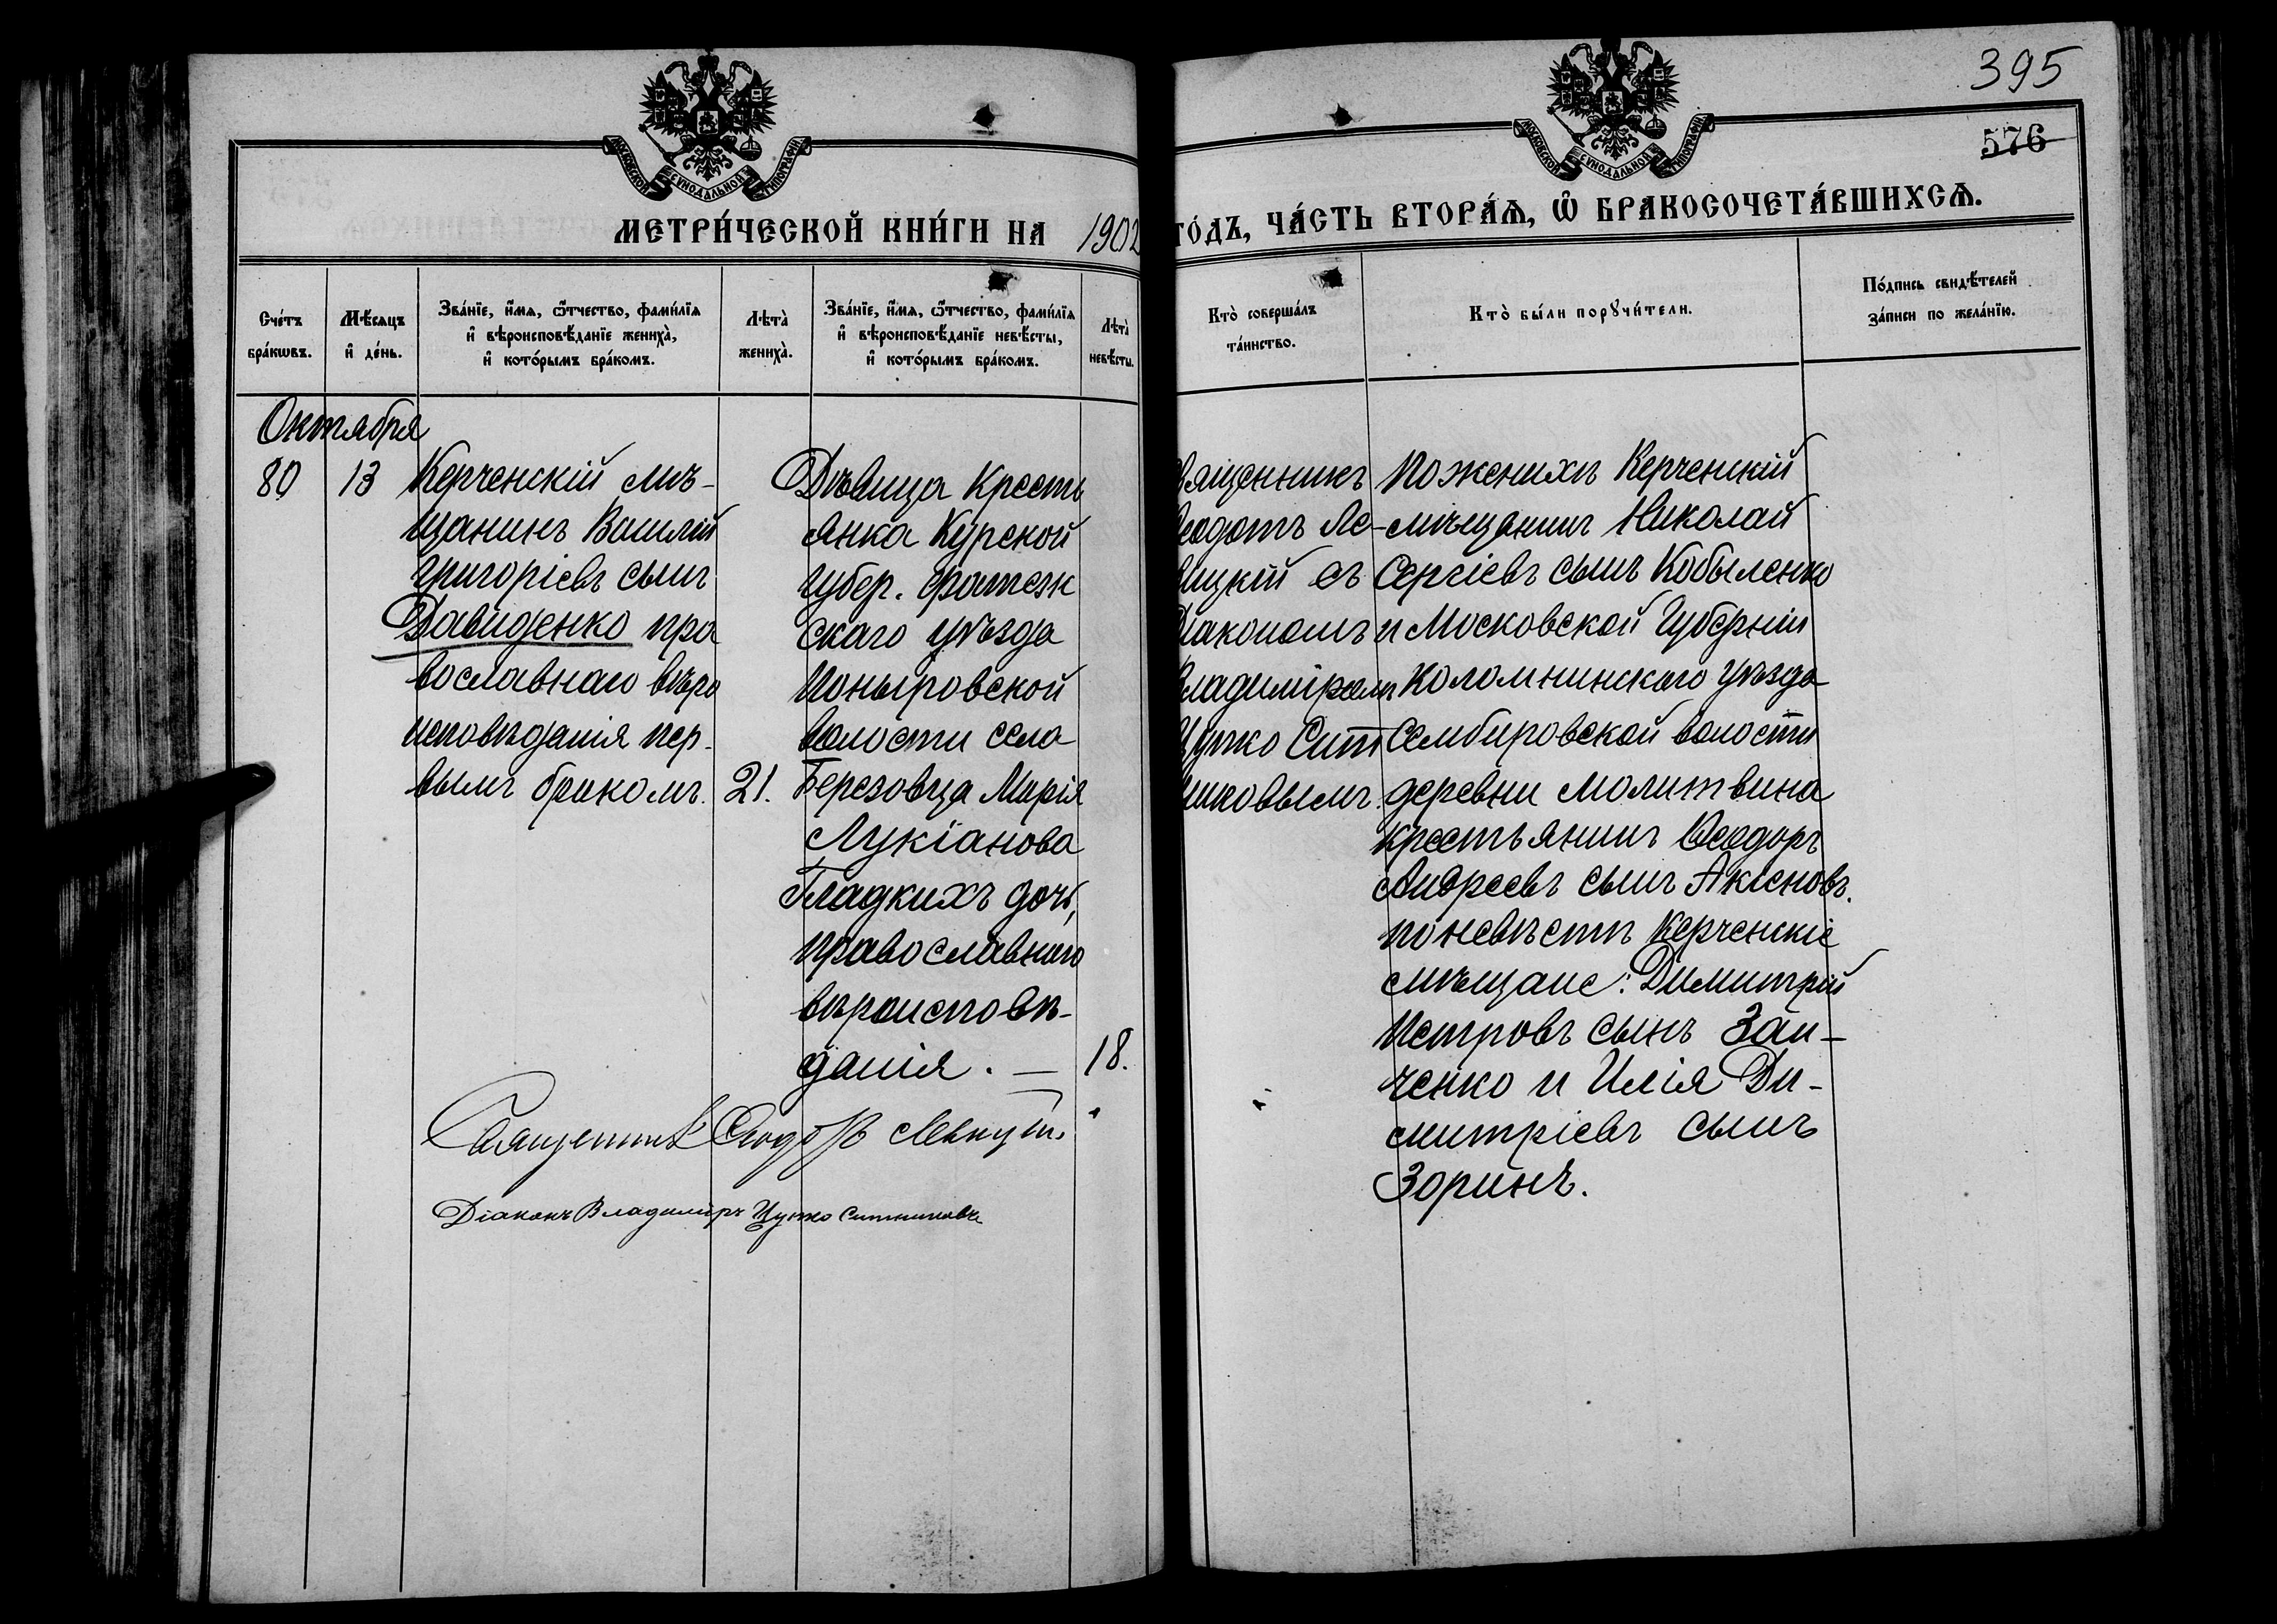 395
576
МОСКОВСКОЙ СѴНОДАЛЬНОЙ ТИПОГРАФІИ
МОСКОВСКОЙ СѴНОДАЛЬНОЙ ТИПОГРАФІИ
МЕТРИ́ЧЕСКОЙ КНИ́ГИ НА 1902
ГО́ДЪ, ЧА́СТЬ ВТОРА́Ѧ, Ѽ БРАКОСОЧЕТА́ВШИХСѦ.
Сче́тъ
бра́кѡвъ.
Мѣ́сѧцъ
и҆ де́нь.
Зва́нїе, и҆́мѧ, ѻ҆́тчество, фами́лїѧ
и҆ вѣроисповѣ́данїе жениха̀,
и҆ кото́рымъ бра́комъ.
Лѣта̀
жениха̀.
Зва́нїе, и҆́мѧ, ѻ҆́тчество, фами́лїѧ
и҆ вѣроисповѣ́данїе невѣ́сты,
и҆ кото́рымъ бра́комъ.
Лѣта̀
невѣ́сты.
Кто̀ соверша́лъ
та́инство.
Кто̀ бы́ли порꙋчи́тели.
По́дпись свидѣ́телей
за́писи по жела́нїю.
Октября
80
13
Керченскій мѣ-
щанинъ Василій
Григоріевъ сынъ
Давиденко пра
вославнаго вѣро
исповѣданія пер-
вымъ бракомъ.
21.
Дѣвица Кресть
янка Курской
губер. Фатеж
скаго уѣзда
Поныровской
волости села
Березовца Марія
Лукіанова
Гладкихъ дочь,
православнаго
вѣроисповѣ-
данія. —
18.
вященникъ
еодотъ Ле-
вицкій съ
Діакономъ
ладиміромъ
Цупко Сит
никовымъ.
По женихѣ Керченскій
мѣщанинъ Николай
Сергіевъ сынъ Кобыленко
и Московской Губерніи
Коломнинскаго уѣзда
Сембировской волости
деревни Молитвина
крестьянинъ Ѳеодоръ
Андреевъ сынъ Аксеновъ.
по невѣстѣ Керченскіе
мѣщане: Димитрій
Петровъ сынъ Заи-
ченко и Илія Ди-
митріевъ сынъ
Зоринъ.
Священникъ
Діаконъ Владиміръ Цупко Ситниковъ